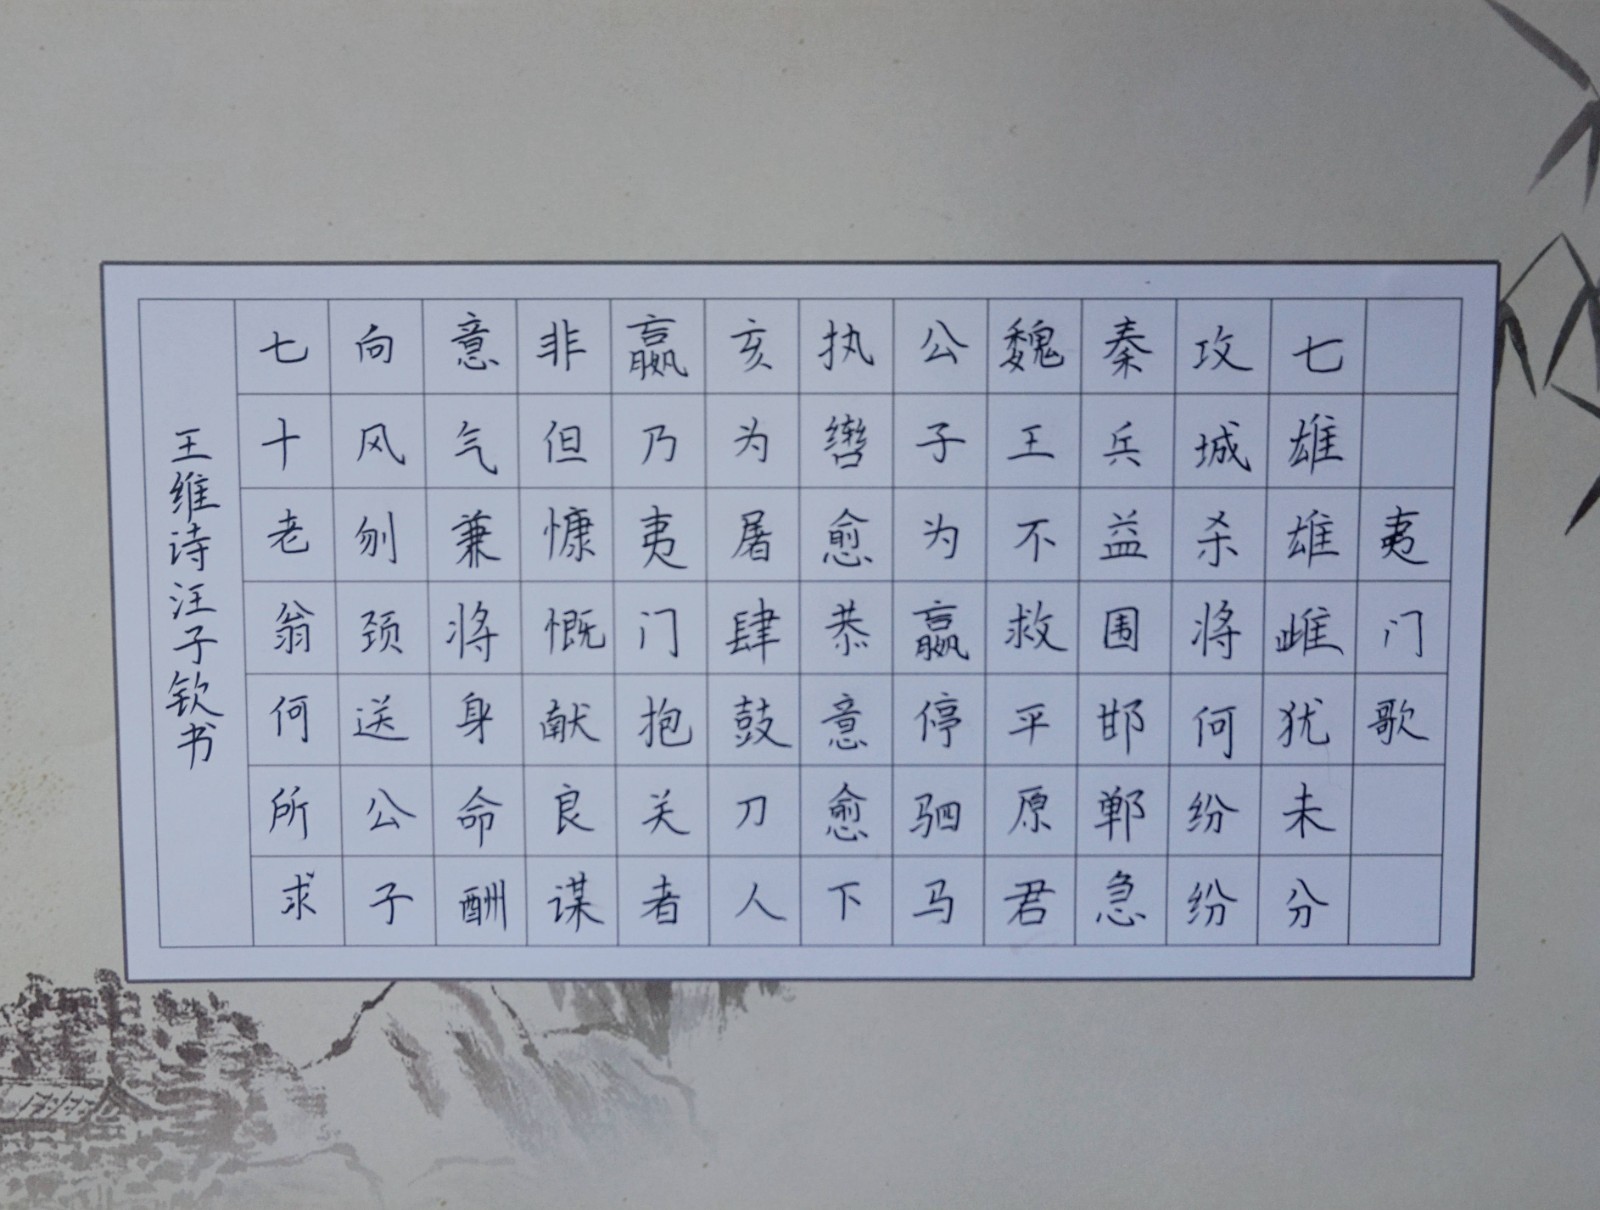 夷门歌
七雄雄雌犹未分
攻城杀将何纷纷
秦兵益围邯郸急
魏王不救平原君
公子为嬴停驷马
执辔愈恭意愈下
亥为屠肆鼓刀人
嬴乃夷门抱关者
非但慷慨献良谋
意气兼将身命酬
向风刎颈送公子
七十老翁何所求
王维诗汪子钦书